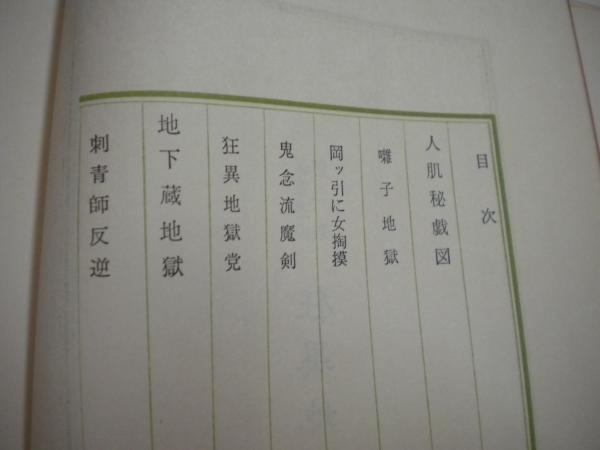 目次
人肌秘戯図
囃子地獄
岡ッ引に女掏摸
鬼念流魔剣
狂異地獄党
地下蔵地獄
刺青師反逆